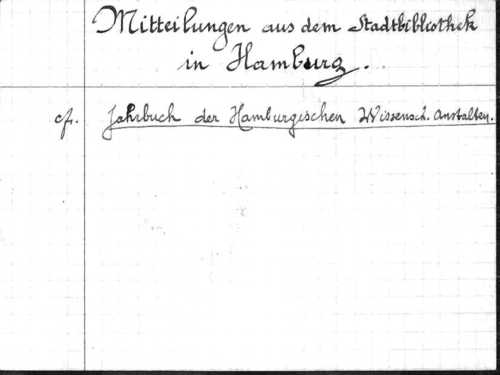 Mitteilungen aus dem Stadtbibliothek
in Hamburg.
cfr. Jahrbuch der Hamburgischen Wissensch. Anstalten.